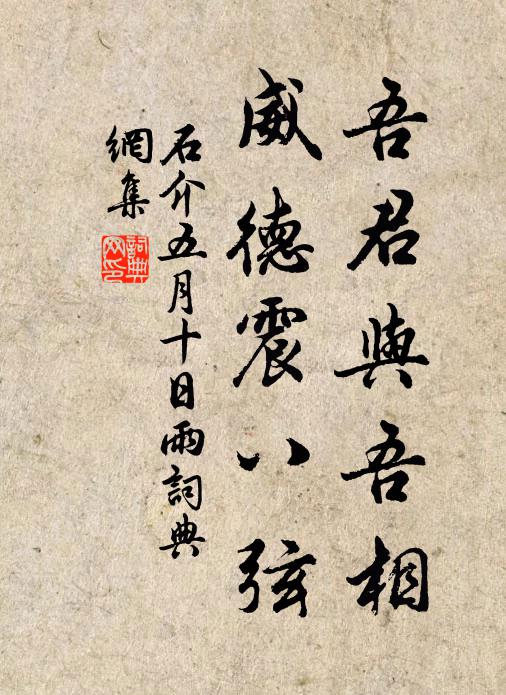 吾君與吾相
威德震八弦
石介五月十日雨詞典
網集
詞典
网印